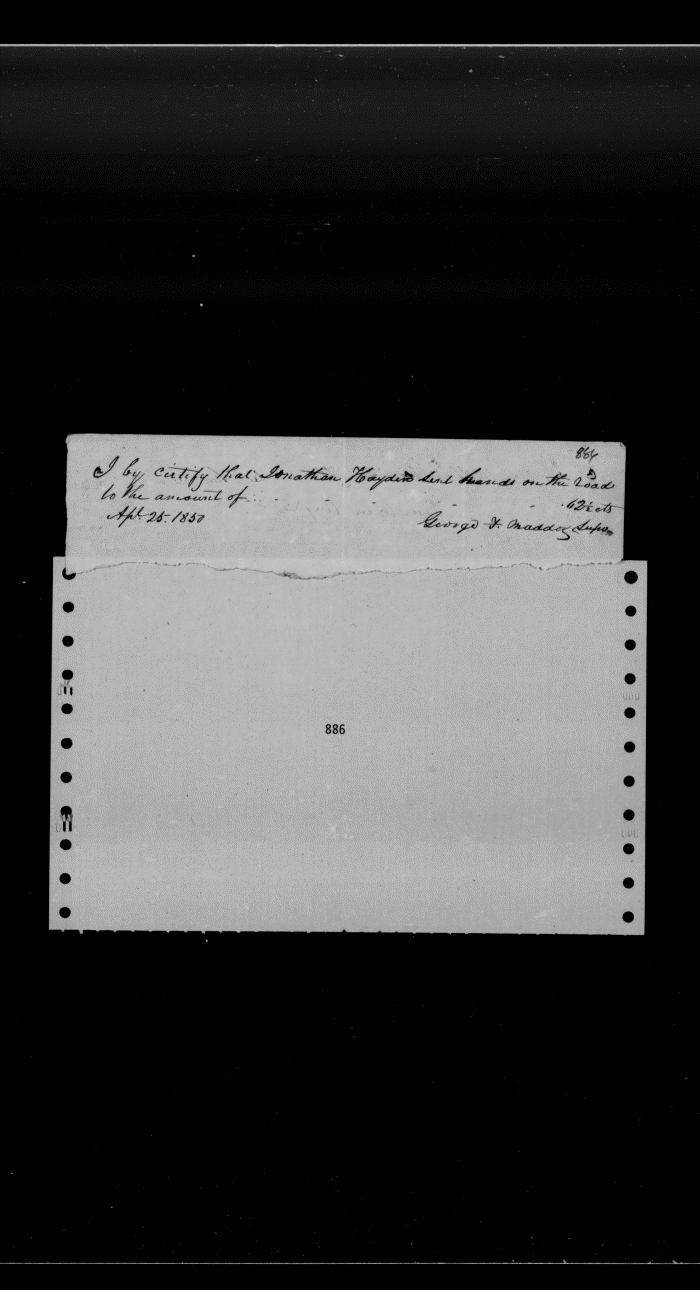 886
I by certify that Jonathan Hayden sent hands on the road
to the amount of . . . . . .62½ cts
Apl. 25. 1850
George F. Maddox Supr.
886